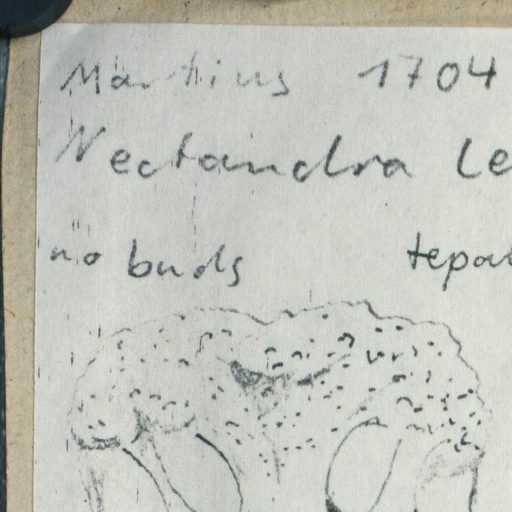 Martius 1704
Nectandra le
no buds tepal